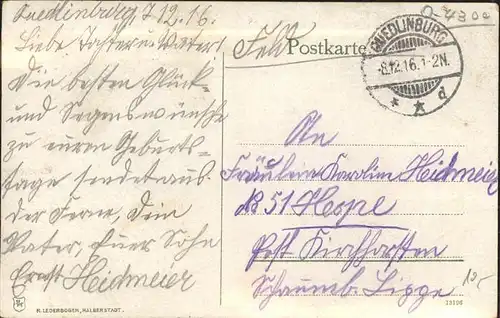 Quedlinburg, 7.12.16.
Liebe Tochter u. Vater!
Die besten Glück-
und Segenswünsche
zu euren Geburts-
tage sendet aus
der Ferne, dein
Vater, euer Sohn
Ernst Heidmeier
Feld Postkarte
QUEDLINBURG
-8.12.16.1-2N.
* * d
0-4800
An
Fräulein Karoline Heidmeier
No 51 Hespe
Post Kirchhorsten
Schaumb. Lippe
10,-
R. LEDERBOGEN, HALBERSTADT.